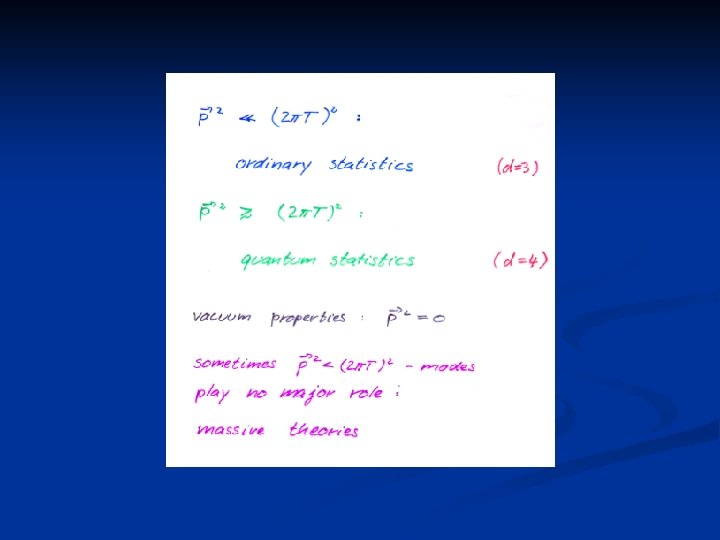 p⃗² ≪ (2πT)² :
ordinary statistics (d=3)
p⃗² ≳ (2πT)² :
quantum statistics (d=4)
vacuum properties : p⃗² = 0
sometimes p⃗² < (2πT)² - modes
play no major role :
massive theories